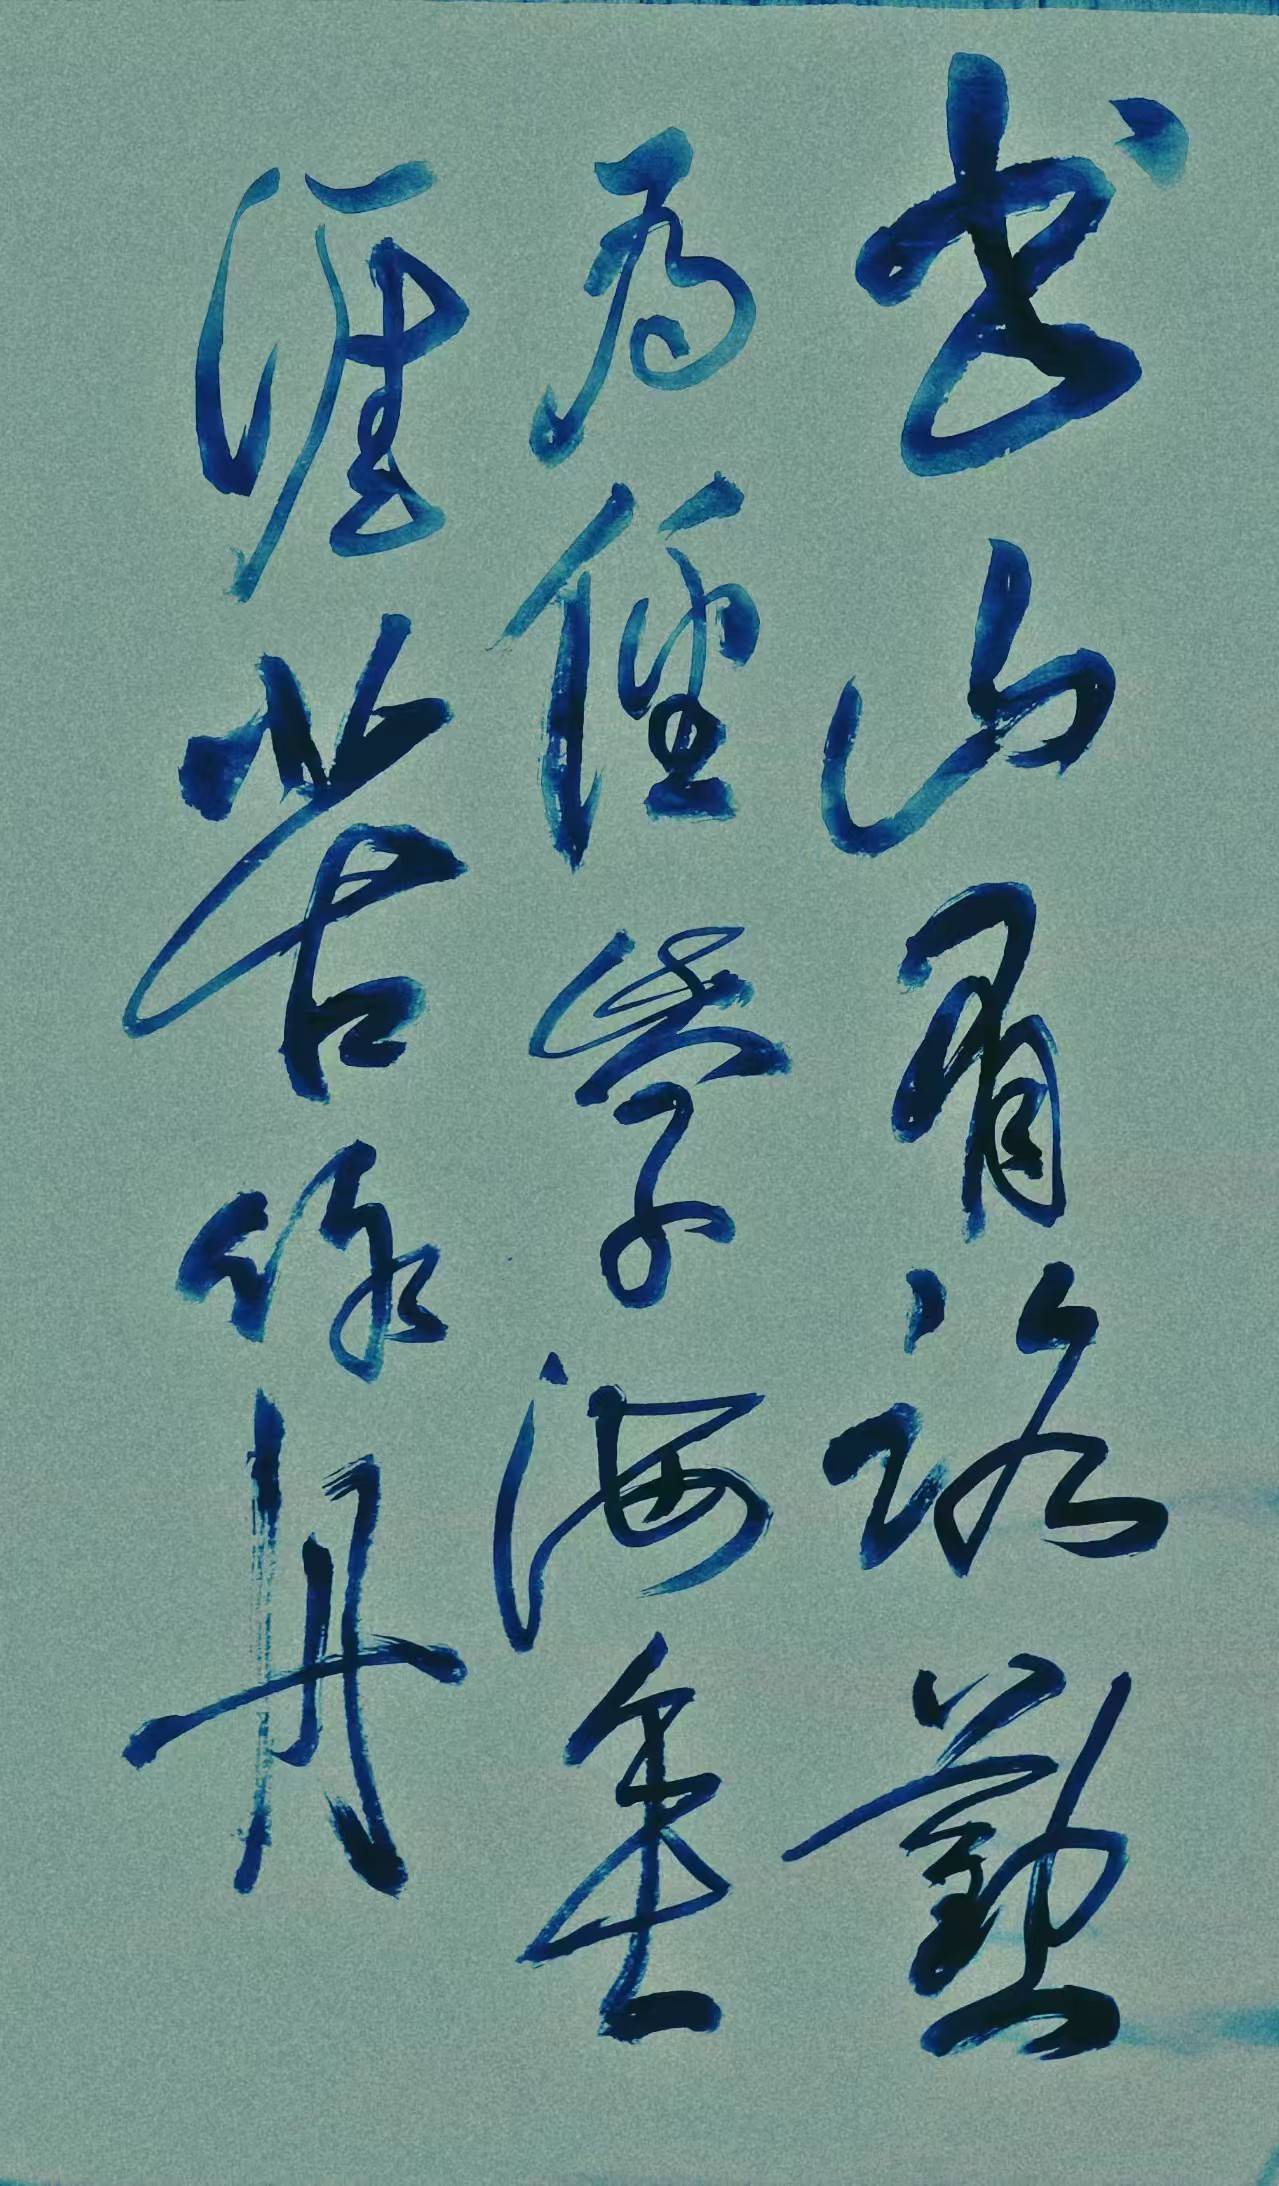 书山有路勤
为径学海无
涯苦作舟